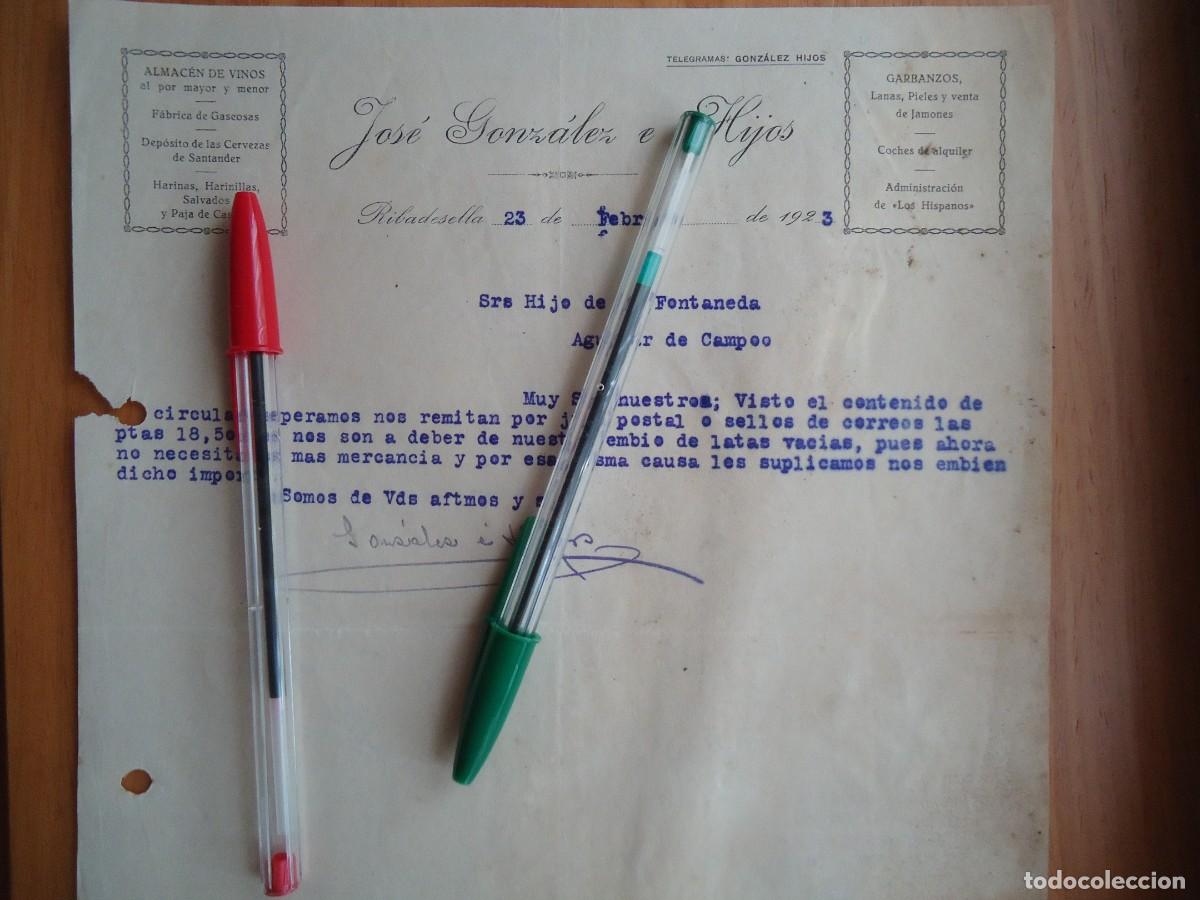 TELEGRAMAS: GONZÁLEZ HIJOS
ALMACÉN DE VINOS
al por mayor y menor
Fábrica de Gaseosas
Depósito de las Cervezas
de Santander
Harinas, Harinillas,
Salvados
y Paja de
José González e Hijos
GARBANZOS,
Lanas, Pieles y venta
de Jamones
Coches de alquiler
Administración
de «Los Hispanos»
Ribadesella 23 de Febr de 1923
Srs Hijo de Fontaneda
de Campoo
Muy nuestros; Visto el contenido de
circula peramos nos remitan por postal o sellos de correos las
ptas 18,50 nos son a deber de nuest embio de latas vacias, pues ahora
no necesita mas mercancia y por esa sma causa les suplicamos nos embien
dicho impor
Somos de Vds aftmos y
González é
todocoleccion